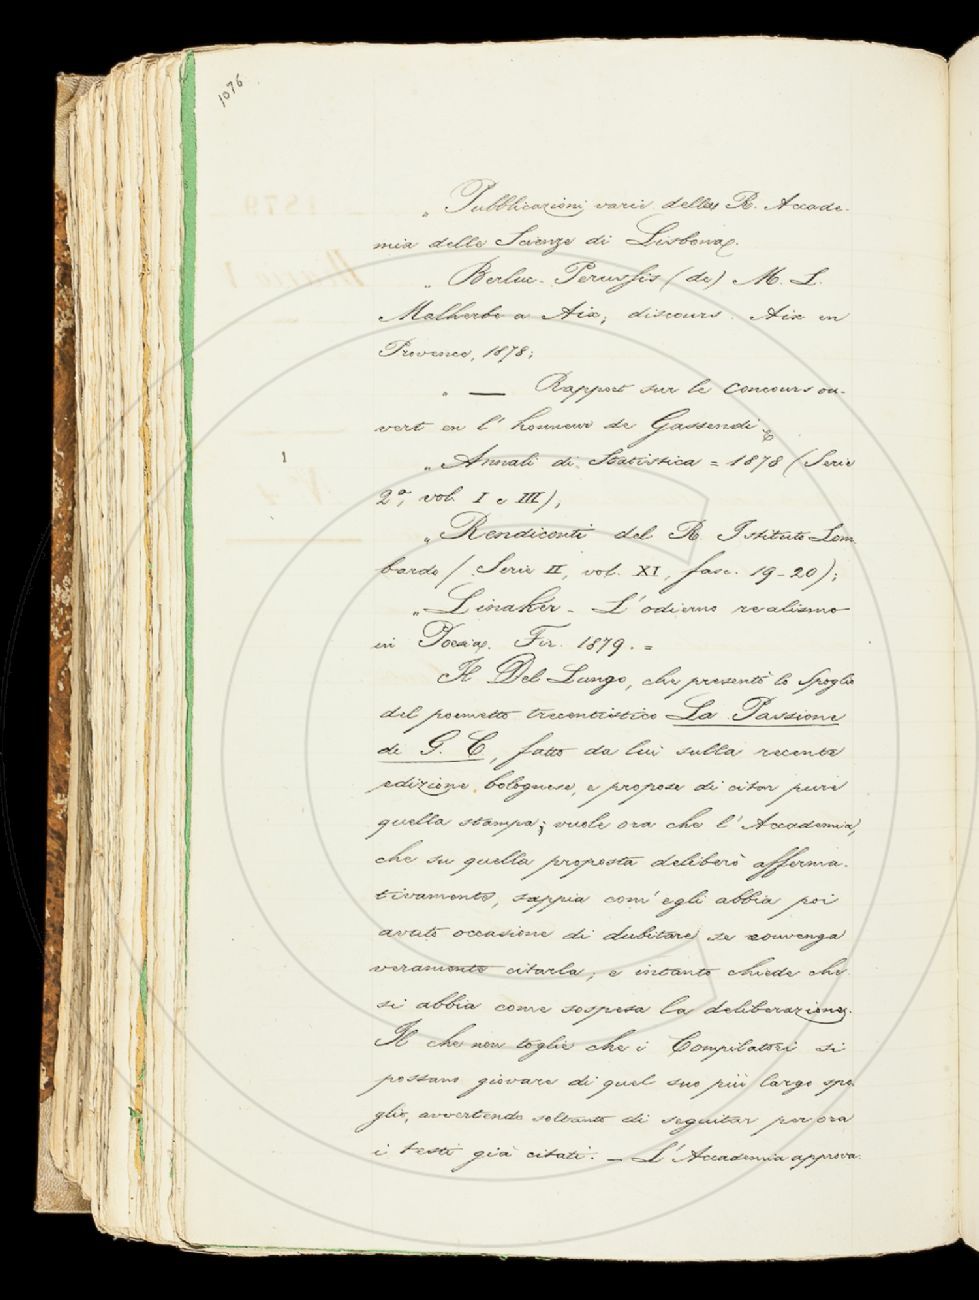 1076
„ Pubblicazioni varie della R. Accade-
mia delle Scienze di Lisbona.
„ Berluc-Perussis (de) M. L.
Malherbe a Aix, discours. Aix en
Provence, 1878;
„ — Rapport sur le concours ou-
vert en l'honneur de Gassendi;
„ Annali di Statistica = 1878 (Serie
2ª, vol. I e III);
„ Rendiconti del R. Istituto Lom-
bardo (Serie II, vol. XI, fasc. 19-20);
„ Linaker - L'odierno realismo
in Poesia. Fir. 1879. =
Il Del Lungo, che presentò lo Spoglio
del poemetto trecentistico La Passione
di G. C, fatto da lui sulla recente
edizione bolognese, e propose di citar pure
quella stampa; vuole ora che l'Accademia,
che su quella proposta deliberò afferma-
tivamente, sappia com'egli abbia poi
avuto occasione di dubitare se convenga
veramente citarla; e intanto chiede che
si abbia come sospesa la deliberazione.
Il che non toglie che i Compilatori si
possano giovare di quel suo più largo spo-
glio, avvertendo soltanto di seguitar per ora
i testi già citati. — L'Accademia approva.